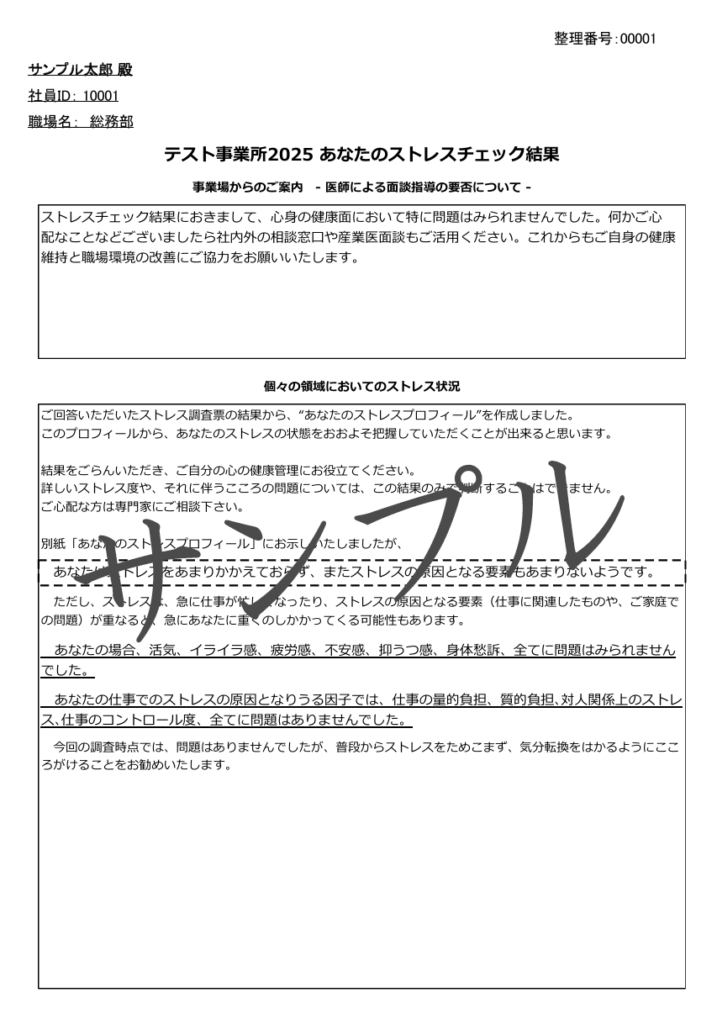 整理番号:00001
サンプル太郎 殿
社員ID: 10001
職場名: 総務部
テスト事業所2025 あなたのストレスチェック結果
事業場からのご案内 - 医師による面談指導の要否について -
ストレスチェック結果におきまして、心身の健康面において特に問題はみられませんでした。何かご心
配なことなどございましたら社内外の相談窓口や産業医面談もご活用ください。これからもご自身の健康
維持と職場環境の改善にご協力をお願いいたします。
個々の領域においてのストレス状況
ご回答いただいたストレス調査票の結果から、“あなたのストレスプロフィール”を作成しました。
このプロフィールから、あなたのストレスの状態をおおよそ把握していただくことが出来ると思います。
結果をごらんいただき、ご自分の心の健康管理にお役立てください。
詳しいストレス度や、それに伴うこころの問題については、この結果のみで判断することはできません。
ご心配な方は専門家にご相談下さい。
別紙「あなたのストレスプロフィール」にお示しいたしましたが、
あなたはストレスをあまりかかえておらず、またストレスの原因となる要素もあまりないようです。
ただし、ストレスは、急に仕事が忙しくなったり、ストレスの原因となる要素（仕事に関連したものや、ご家庭で
の問題）が重なると、急にあなたに重くのしかかってくる可能性もあります。
あなたの場合、活気、イライラ感、疲労感、不安感、抑うつ感、身体愁訴、全てに問題はみられません
でした。
あなたの仕事でのストレスの原因となりうる因子では、仕事の量的負担、質的負担、対人関係上のストレ
ス、仕事のコントロール度、全てに問題はありませんでした。
今回の調査時点では、問題はありませんでしたが、普段からストレスをためこまず、気分転換をはかるようにここ
ろがけることをお勧めいたします。
サンプル